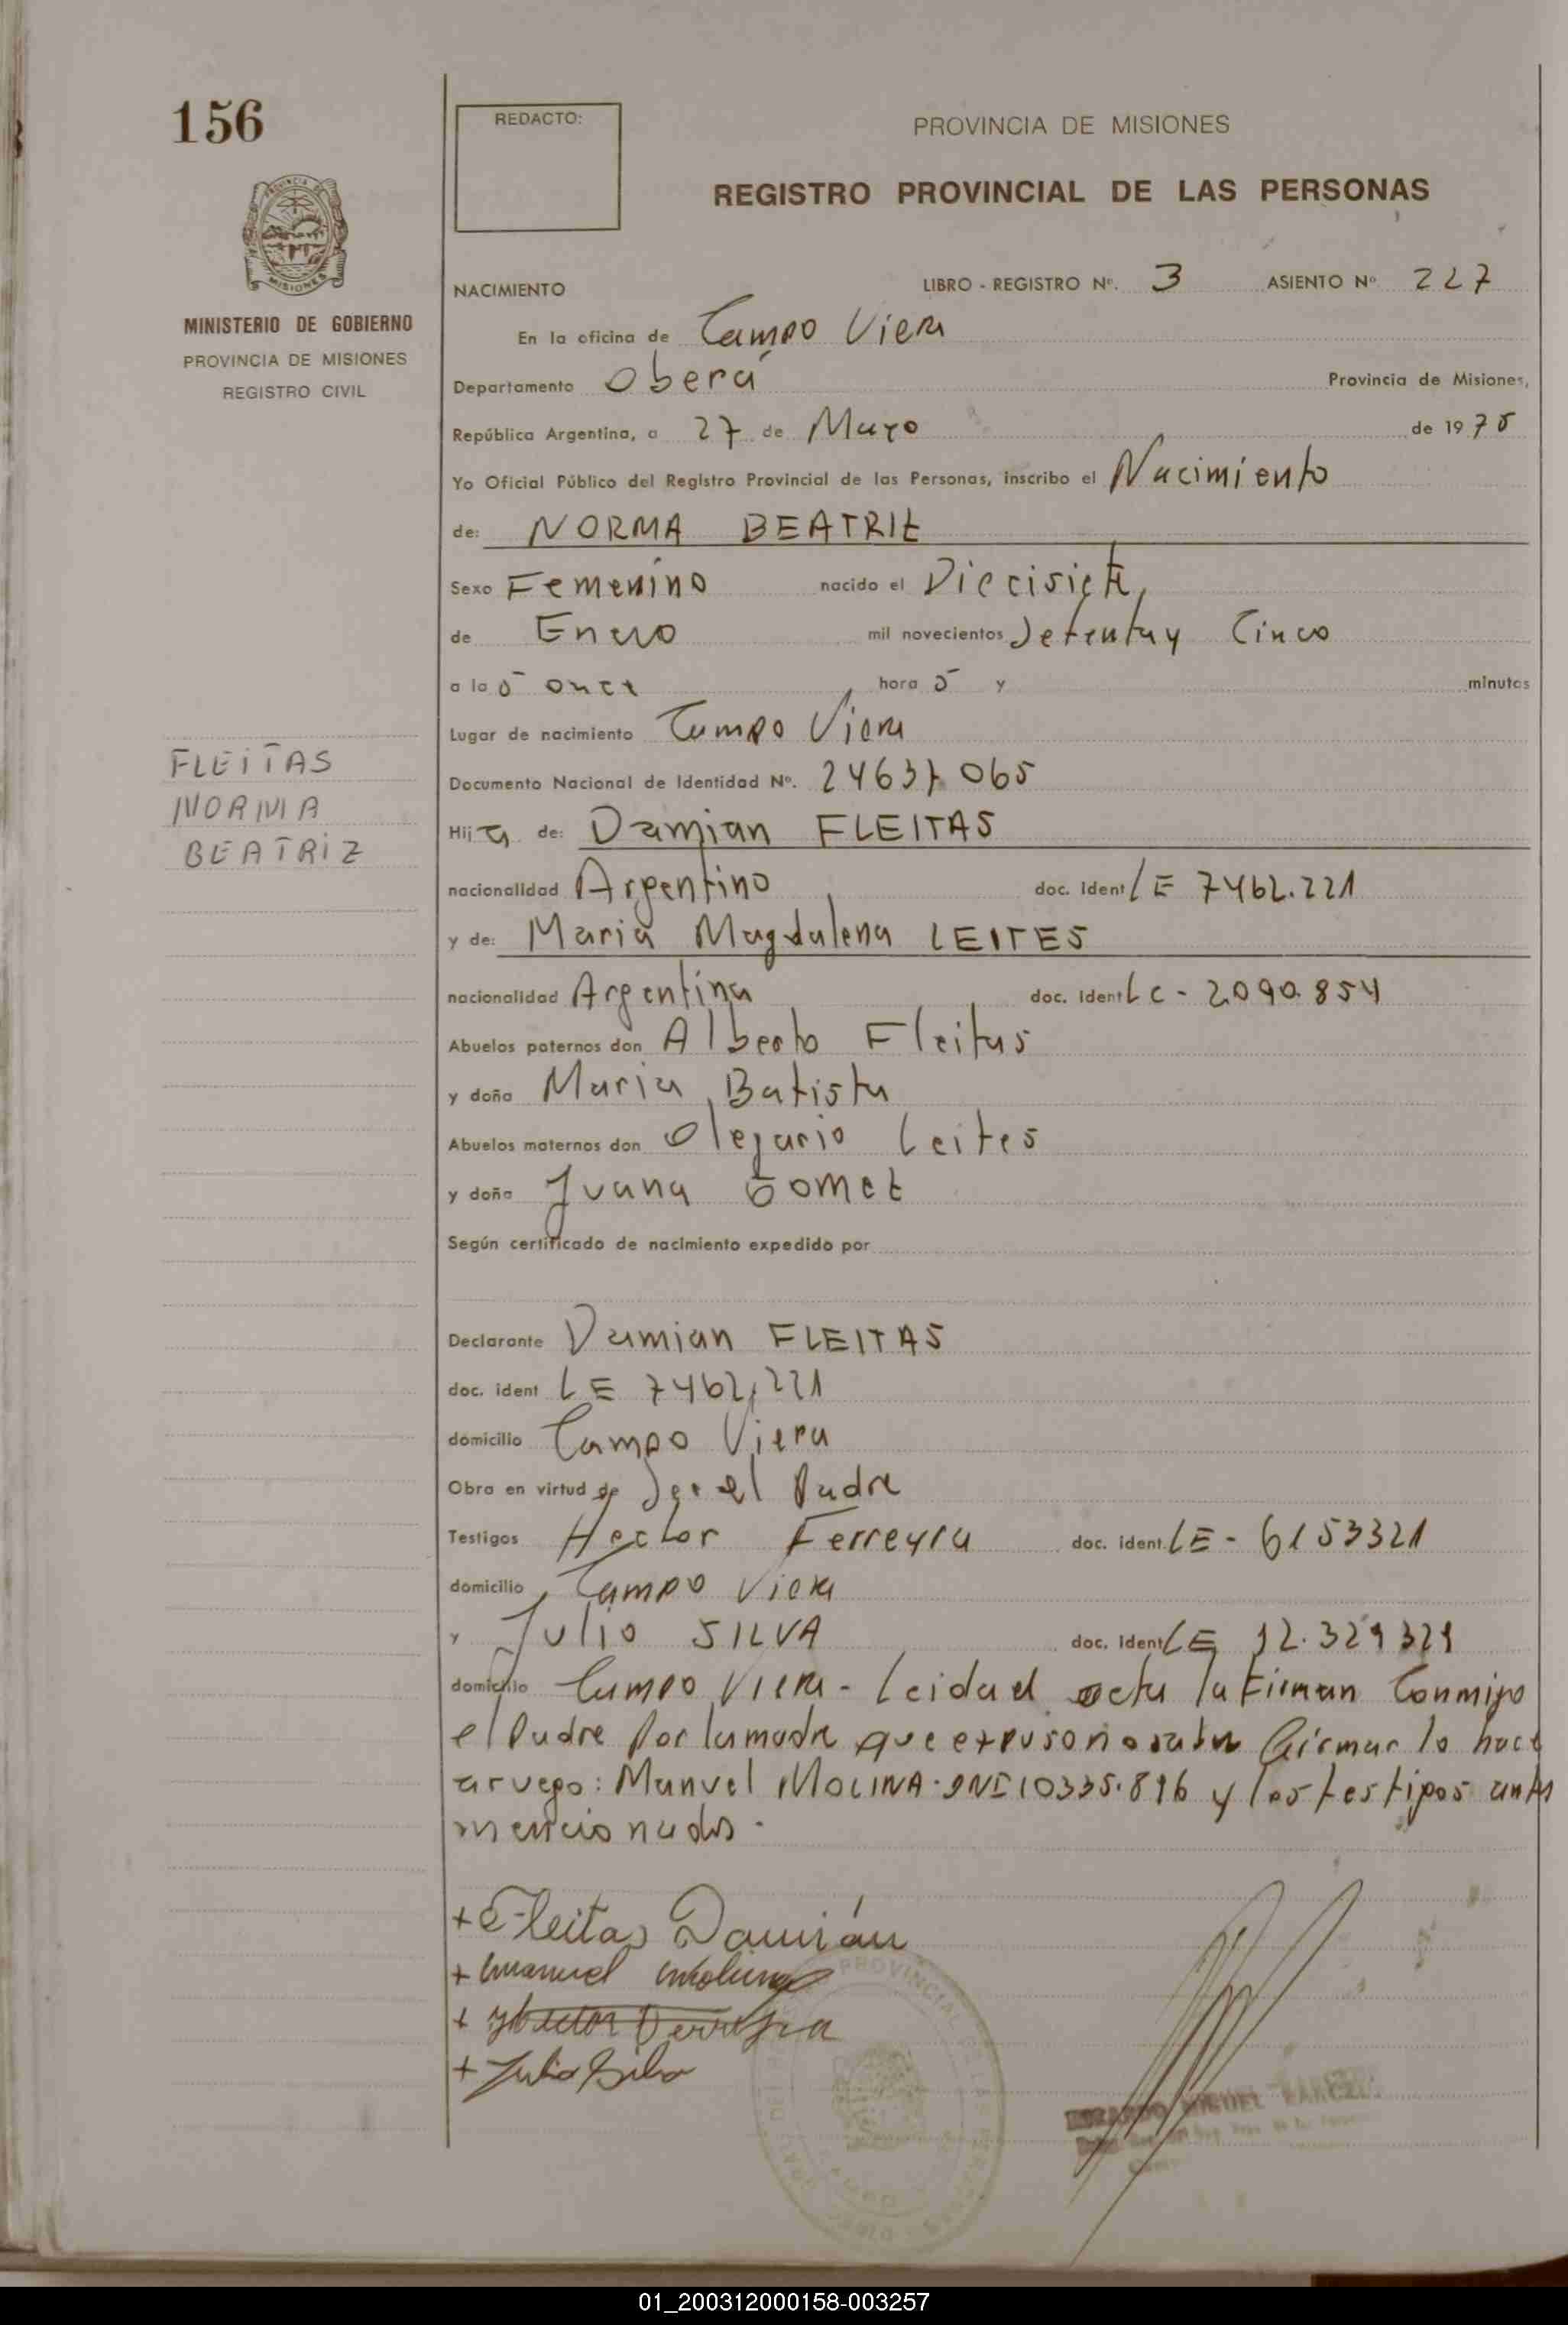 156
REDACTO:
PROVINCIA DE MISIONES
REGISTRO PROVINCIAL DE LAS PERSONAS
MISIONES
MINISTERIO DE GOBIERNO
PROVINCIA DE MISIONES
REGISTRO CIVIL
NACIMIENTO
LIBRO - REGISTRO Nº. 3 ASIENTO Nº 227
En la oficina de Campo Viera
Departamento Oberá Provincia de Misiones,
República Argentina, a 27 de Mayo de 1975
Yo Oficial Público del Registro Provincial de las Personas, inscribo el Nacimiento
de: NORMA BEATRIZ
Sexo Femenino nacido el Diecisiete
de Enero mil novecientos Setenta y Cinco
a la s once hora s y minutos
Lugar de nacimiento Campo Viera
FLEITAS
NORMA
BEATRIZ
Documento Nacional de Identidad Nº. 24637065
Hij a de: Damian FLEITAS
nacionalidad Argentino doc. ident LE 7462.221
y de: Maria Magdalena LEITES
nacionalidad Argentina doc. ident LC - 2.090.854
Abuelos paternos don Alberto Fleitas
y doña Maria Batista
Abuelos maternos don Olegario Leites
y doña Juana Gomez
Según certificado de nacimiento expedido por
Declarante Damian FLEITAS
doc. ident LE 7462,221
domicilio Campo Viera
Obra en virtud de Ser el Padre
Testigos Hector Ferreyra doc. ident. LE - 6153321
domicilio Campo Viera
y Julio SILVA doc. ident LE 12.329329
domicilio Campo Viera - Leida el acta la Firman Conmigo
el Padre Por la madre que expuso no saber firmar lo hace
a ruego: Manuel MOLINA - DNI 10335.896 y los testigos antes
mencionados.
+ Fleitas Damián
+ Manuel Molina
+ Hector Ferreyra
+ Julio Silva
PROVINCIAL
MIGUEL
01_200312000158-003257